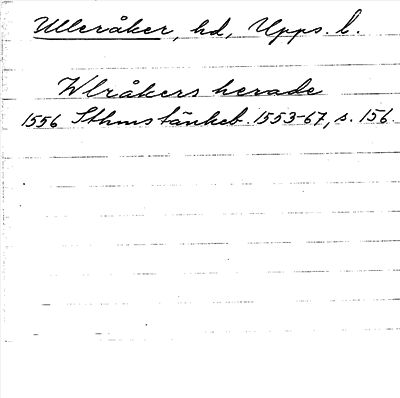 Ulleråker, hd, Upps. l.
Wlråkers herade
1556 Sthms tänkeb. 1553-67, s. 156.